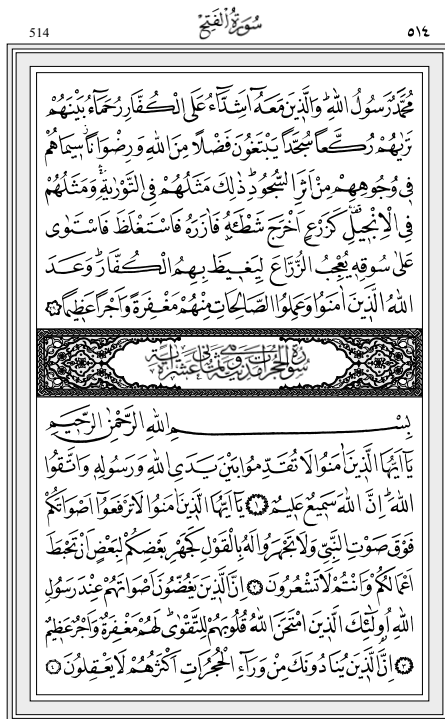 514 سُورَةُ الْفَتْحِ ٥١٤
مُحَمَّدٌ رَسُولُ اللّٰهِ وَالَّذ۪ينَ مَعَهُٓ اَشِدَّٓاءُ عَلَى الْكُفَّارِ رُحَمَٓاءُ بَيْنَهُمْ
تَرٰيهُمْ رُكَّعًا سُجَّدًا يَبْتَغُونَ فَضْلًا مِنَ اللّٰهِ وَرِضْوَانًا س۪يمَاهُمْ
ف۪ي وُجُوهِهِمْ مِنْ اَثَرِ السُّجُودِ ذٰلِكَ مَثَلُهُمْ فِي التَّوْرٰيةِ وَمَثَلُهُمْ
فِي الْاِنْج۪يلِ كَزَرْعٍ اَخْرَجَ شَطْـَٔهُ فَاٰزَرَهُ فَاسْتَغْلَظَ فَاسْتَوٰى
عَلٰى سُوقِه۪ يُعْجِبُ الزُّرَّاعَ لِيَغ۪يظَ بِهِمُ الْكُفَّارَ وَعَدَ
اللّٰهُ الَّذ۪ينَ اٰمَنُوا وَعَمِلُوا الصَّالِحَاتِ مِنْهُمْ مَغْفِرَةً وَاَجْرًا عَظ۪يمًا ﴿٢٩﴾
سُورَةُ الْحُجُرَاتِ مَدَنِيَّةٌ وَهِيَ ثَمَانِيَ عَشْرَةَ اٰيَةً
بِسْمِ اللّٰهِ الرَّحْمٰنِ الرَّح۪يمِ
يَٓا اَيُّهَا الَّذ۪ينَ اٰمَنُوا لَا تُقَدِّمُوا بَيْنَ يَدَيِ اللّٰهِ وَرَسُولِه۪ وَاتَّقُوا
اللّٰهَ اِنَّ اللّٰهَ سَم۪يعٌ عَل۪يمٌ ﴿١﴾ يَٓا اَيُّهَا الَّذ۪ينَ اٰمَنُوا لَا تَرْفَعُٓوا اَصْوَاتَكُمْ
فَوْقَ صَوْتِ النَّبِيِّ وَلَا تَجْهَرُوا لَهُ بِالْقَوْلِ كَجَهْرِ بَعْضِكُمْ لِبَعْضٍ اَنْ تَحْبَطَ
اَعْمَالُكُمْ وَاَنْتُمْ لَا تَشْعُرُونَ ﴿٢﴾ اِنَّ الَّذ۪ينَ يَغُضُّونَ اَصْوَاتَهُمْ عِنْدَ رَسُولِ
اللّٰهِ اُو۬لٰٓئِكَ الَّذ۪ينَ امْتَحَنَ اللّٰهُ قُلُوبَهُمْ لِلتَّقْوٰى لَهُمْ مَغْفِرَةٌ وَاَجْرٌ عَظ۪يمٌ
﴿٣﴾ اِنَّ الَّذ۪ينَ يُنَادُونَكَ مِنْ وَرَٓاءِ الْحُجُرَاتِ اَكْثَرُهُمْ لَا يَعْقِلُونَ ﴿٤﴾